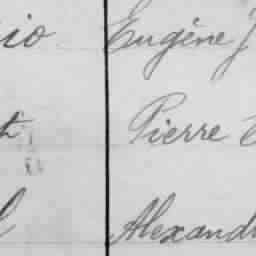 io Eugène J
Pierre
Alexand